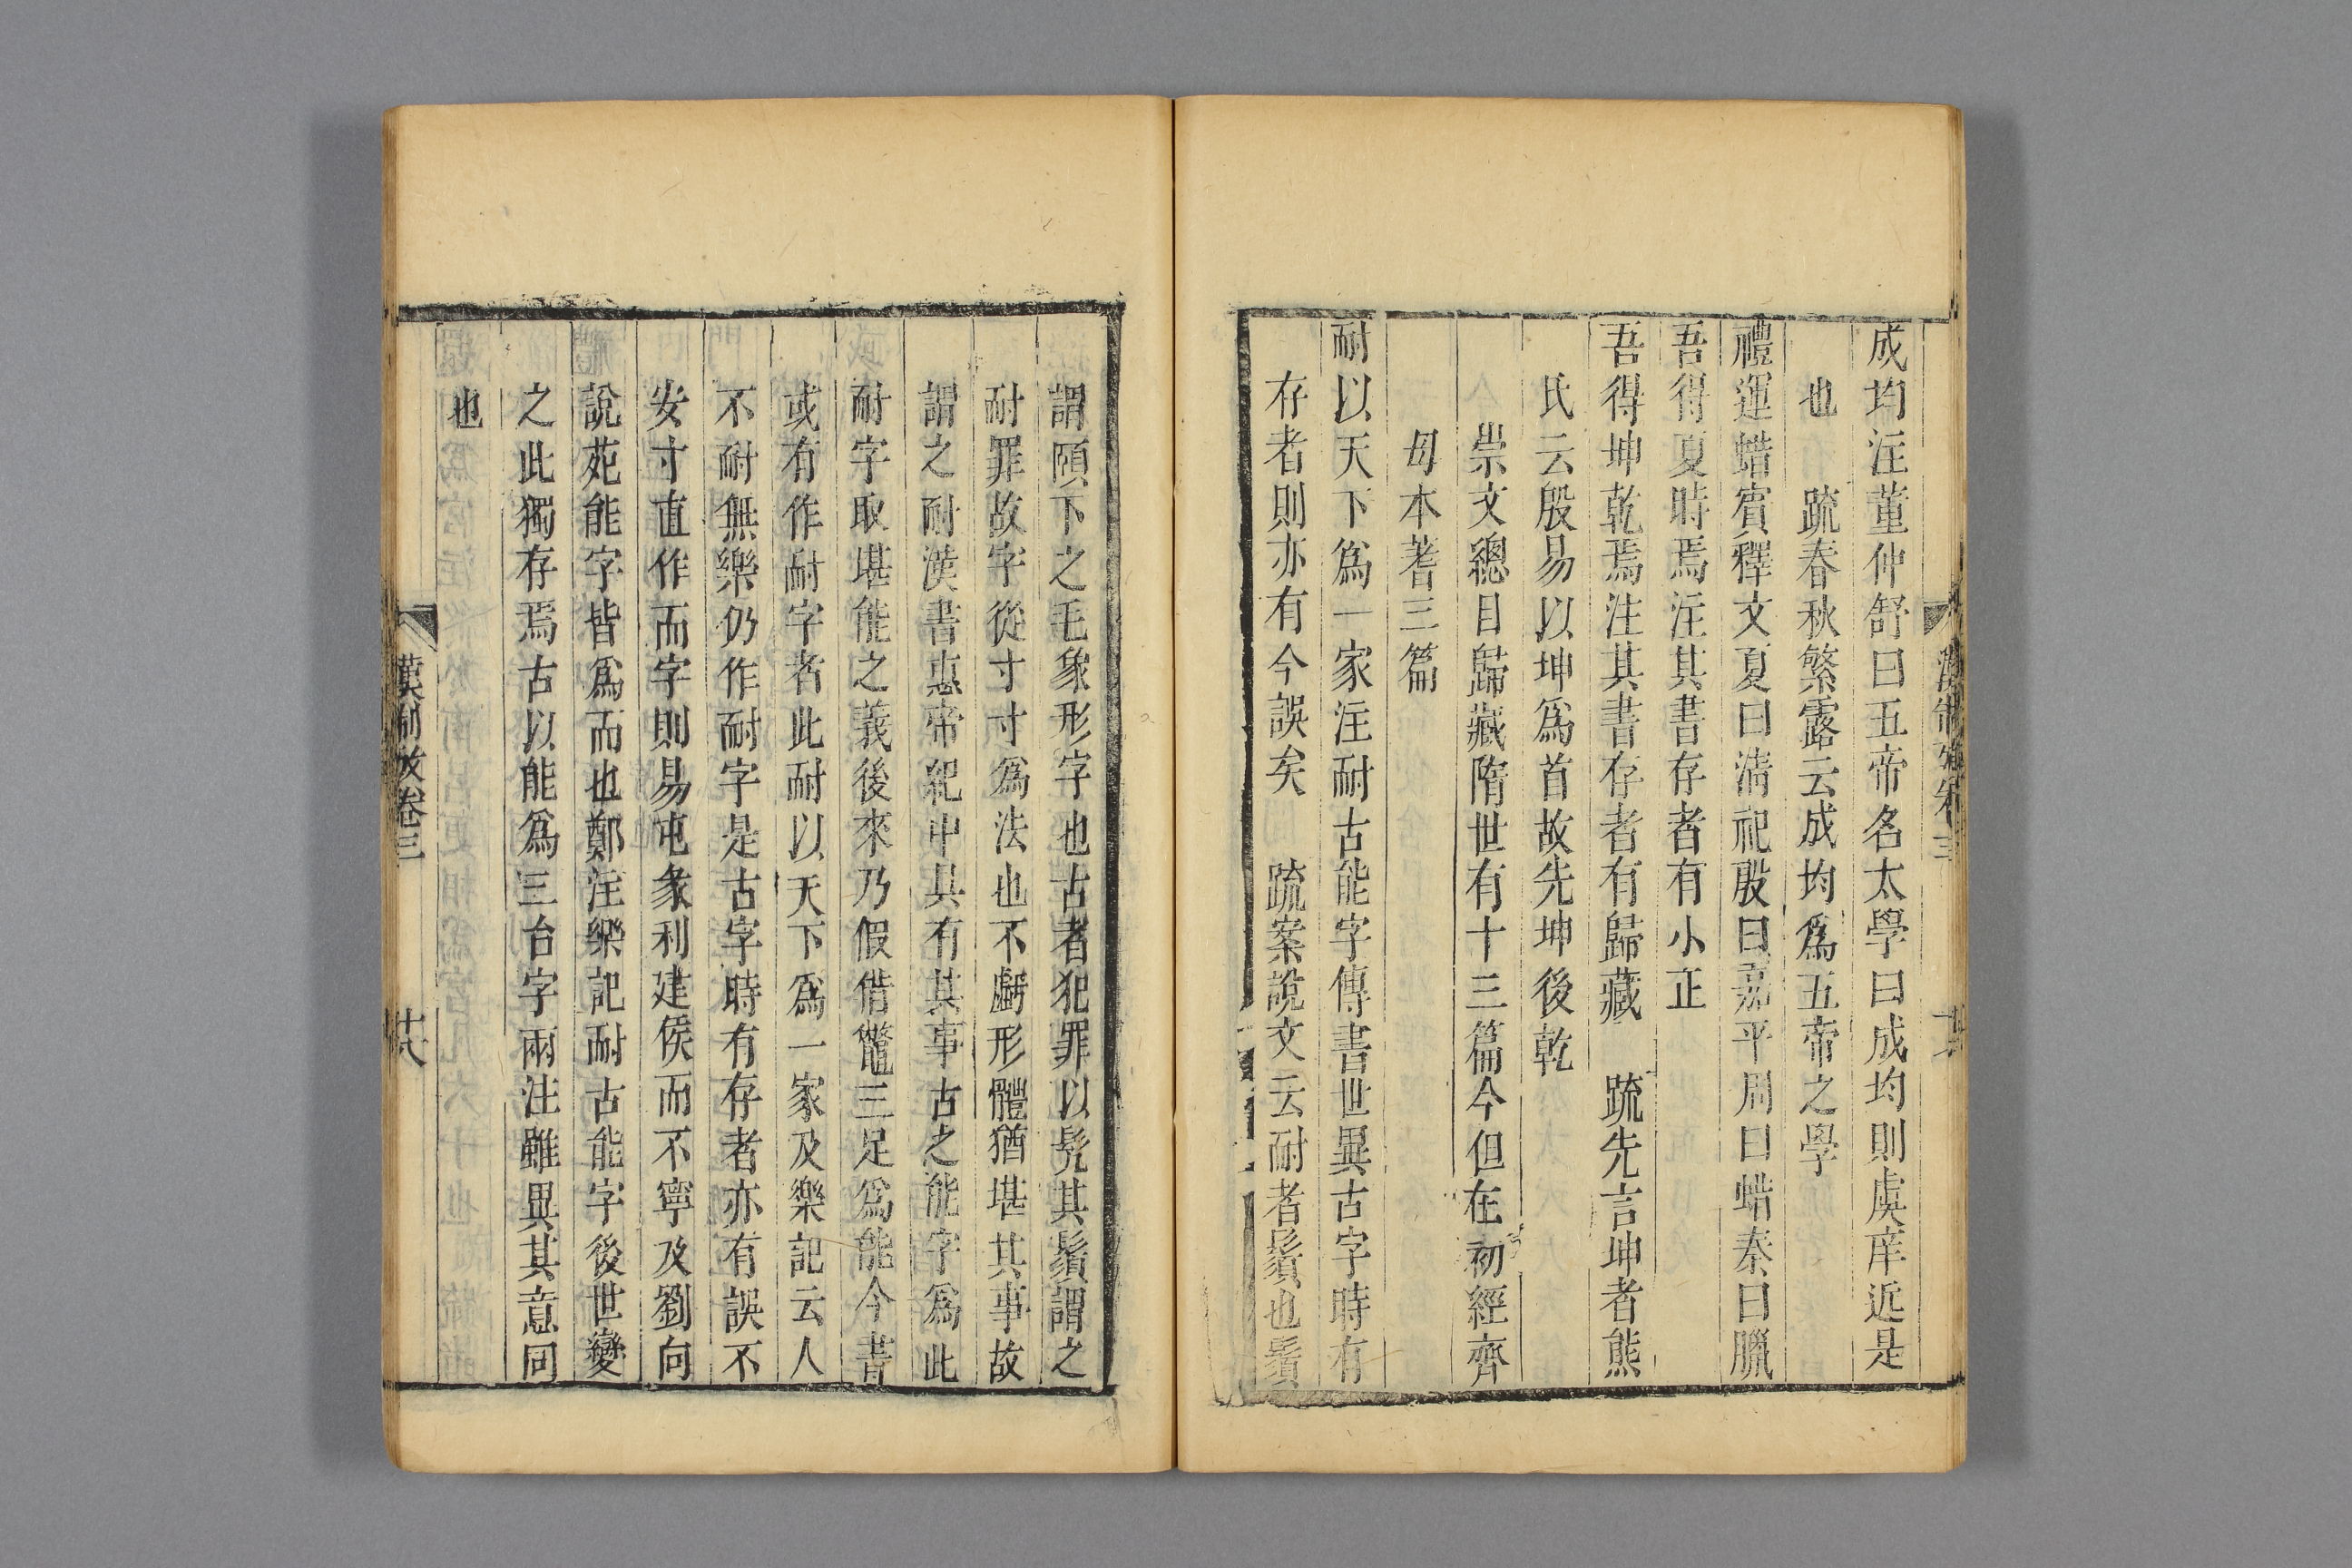 成均注董仲舒曰五帝名太學曰成均則虞庠近是
也　疏春秋繁露云成均爲五帝之學
禮運蜡賓釋文夏曰淸祀殷曰嘉平周曰蜡秦曰臘
吾得夏時焉注其書存者有小正
吾得坤乾焉注其書存者有歸藏　疏先言坤者熊
氏云殷易以坤爲首故先坤後乾
崇文總目歸藏隋世有十三篇今但在初經齊
母本蓍三篇
耐以天下爲一家注耐古能字傳書世異古字時有
存者則亦有今誤矣　疏案說文云耐者鬚也鬚
謂頤下之毛象形字也古者犯罪以髠其鬚謂之
耐罪故字從寸寸爲法也不虧形體猶堪其事故
謂之耐漢書惠帝紀中具有其事古之能字爲此
耐字取堪能之義後來乃假借鼈三足爲能今書
或有作耐字者此耐以天下爲一家及樂記云人
不耐無樂仍作耐字是古字時有存者亦有誤不
安寸直作而字則易屯彖利建侯而不寧及劉向
說苑能字皆爲而也鄭注樂記耐古能字後世變
之此獨存焉古以能爲三台字兩注雖異其意同
也
漢制攷卷三
十六